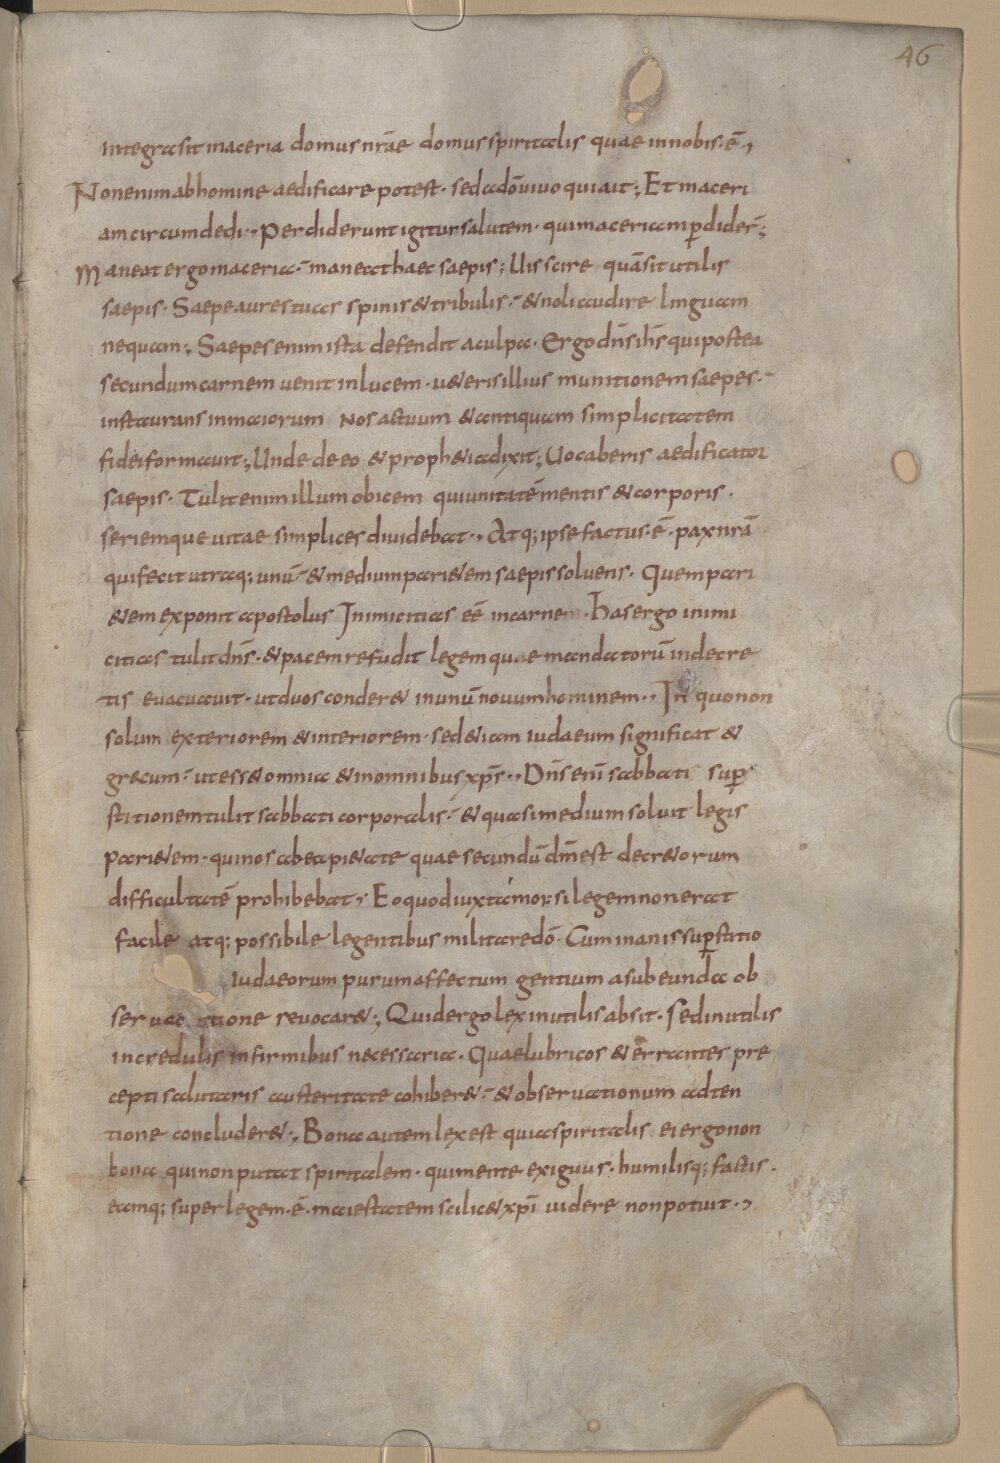 46
integra sit maceria domus nrāe domus spiritalis quae in nobis·ē·,
Non enim ab homine aedificare potest· sed a dō uiuo qui ait·; Et maceri
am circumdedi·, Perdiderunt igitur salutem· qui maceriam ꝑdider̄·;
Maneat ergo maceria·- maneat haec saepis; Uis scire quā sit utilis
saepis· Saepe aures tuas spinis & tribulis·- & noli audire linguam
nequam·; Saepes enim ista defendit a culpa· Ergo dn̄s ih̄s qui postea
secundum carnem uenit in lucem· u&eris illius munitionem saepes·-
instaurans in maiorum nos actuum & antiquam simplicitatem
fidei formauit·; Unde de eo & proph&ia dixit·; Uocaberis aedificator
saepis· Tulit enim illum obicem qui unitatē mentis & corporis·
seriemque uitae simplices diuidebat·, Atq; ipse factus·ē· pax nrā
qui fecit utraq; unū·- & medium pari&em saepis soluens· Quem pari
&em exponit apostolus Inimicitias eē in carnem· Has ergo inimi
citias tulit dn̄s·& pacem refudit legem quae mandatorū in decre
tis euacuauit· ut duos conder& in unū nouum hominem·, In quo non
solum exteriorem & interiorem· sed &iam iudaeum significat &
grecum·- ut ess& omnia & in omnibus xp̄s·, Dn̄s enī sabbati suꝑ
stitionem tulit sabbati corporalis·- & quasi medium soluit legis
pari&em· qui nos ab ea pi&ate quae secundū dm̄ est decr&orum
difficultatē prohibebat·, Eo quod iuxta mor; si legem non erat
facile atq; possibile le gentibus militare dō· Cum inanis suꝑstitio
iudaeorum purum affectum gentium a subeunda ob
seruatione reuocar&·; Quid ergo lex inutilis absit· Sed inutilis
incredulis infirmibus necessaria· Quae lubricos & errantes pre
cepti salutaris austeritate cohiber&·- & obseruationum adten
tione concluder&·, Bona autem lex est quia spiritalis ei ergo non
bona qui non putat spiritalem· qui mente exiguus· humilisq; factis·
eamq; super legem·ē· maiestatem scilic& xpī uidere non potuit·,